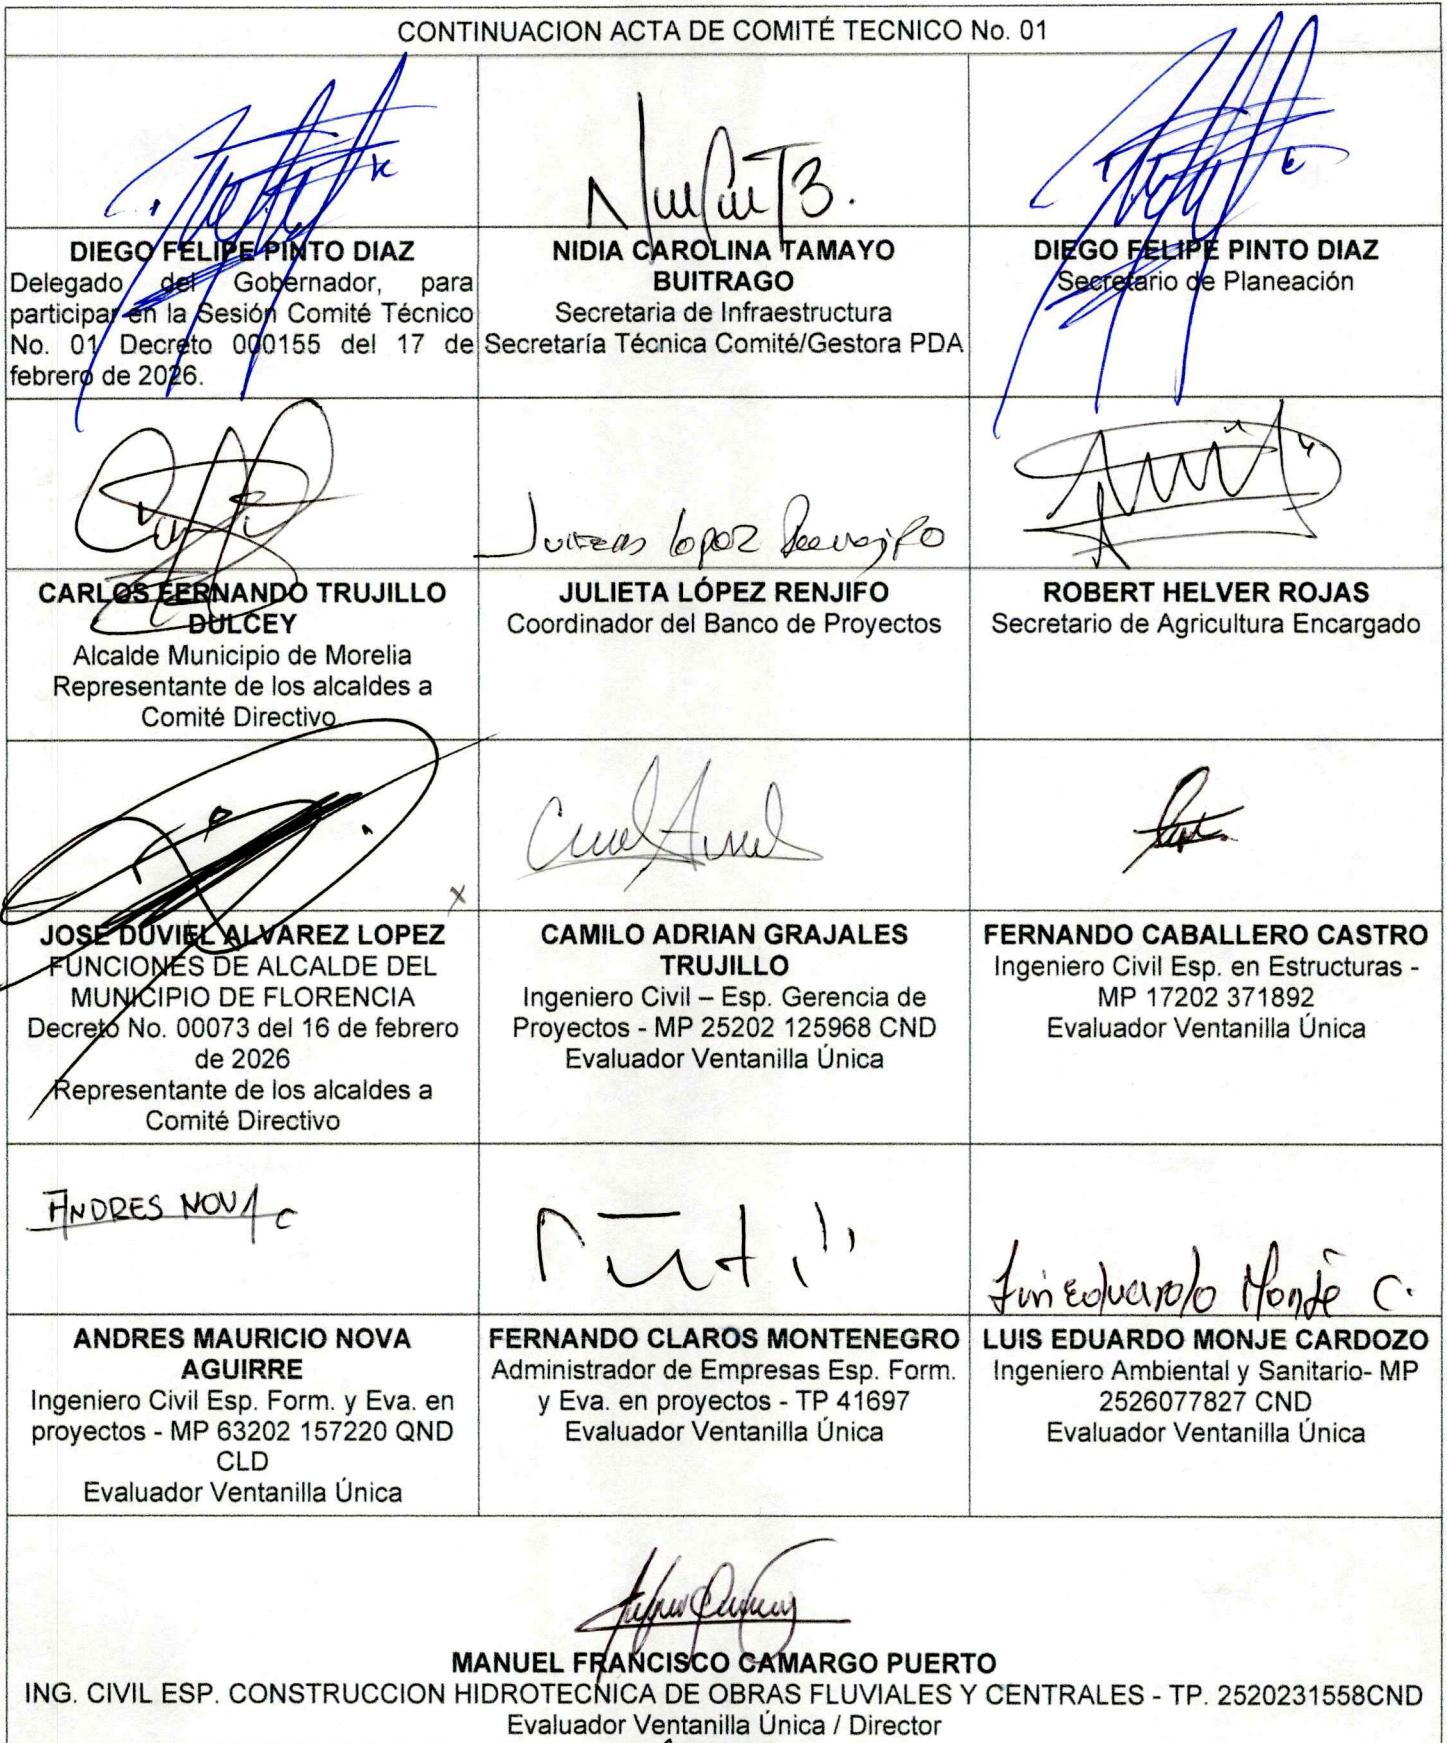 CONTINUACION ACTA DE COMITÉ TECNICO No. 01
DIEGO FELIPE PINTO DIAZ
Delegado del Gobernador, para
participar en la Sesión Comité Técnico
No. 01 Decreto 000155 del 17 de
febrero de 2026.
NIDIA CAROLINA TAMAYO
BUITRAGO
Secretaria de Infraestructura
Secretaría Técnica Comité/Gestora PDA
DIEGO FELIPE PINTO DIAZ
Secretario de Planeación
CARLOS FERNANDO TRUJILLO
DULCEY
Alcalde Municipio de Morelia
Representante de los alcaldes a
Comité Directivo
Julieta López Renjifo
JULIETA LÓPEZ RENJIFO
Coordinador del Banco de Proyectos
ROBERT HELVER ROJAS
Secretario de Agricultura Encargado
JOSE DUVIEL ALVAREZ LOPEZ
FUNCIONES DE ALCALDE DEL
MUNICIPIO DE FLORENCIA
Decreto No. 00073 del 16 de febrero
de 2026
Representante de los alcaldes a
Comité Directivo
CAMILO ADRIAN GRAJALES
TRUJILLO
Ingeniero Civil – Esp. Gerencia de
Proyectos - MP 25202 125968 CND
Evaluador Ventanilla Única
FERNANDO CABALLERO CASTRO
Ingeniero Civil Esp. en Estructuras -
MP 17202 371892
Evaluador Ventanilla Única
ANDRES NOVA
ANDRES MAURICIO NOVA
AGUIRRE
Ingeniero Civil Esp. Form. y Eva. en
proyectos - MP 63202 157220 QND
CLD
Evaluador Ventanilla Única
FERNANDO CLAROS MONTENEGRO
Administrador de Empresas Esp. Form.
y Eva. en proyectos - TP 41697
Evaluador Ventanilla Única
Luis Eduardo Monje C.
LUIS EDUARDO MONJE CARDOZO
Ingeniero Ambiental y Sanitario- MP
2526077827 CND
Evaluador Ventanilla Única
MANUEL FRANCISCO CAMARGO PUERTO
ING. CIVIL ESP. CONSTRUCCION HIDROTECNICA DE OBRAS FLUVIALES Y CENTRALES - TP. 2520231558CND
Evaluador Ventanilla Única / Director